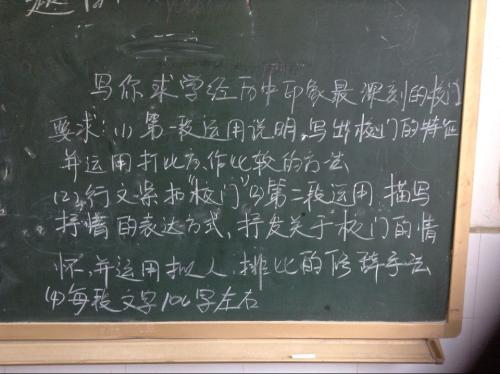 写你求学经历中印象最深刻的校门
要求:(1)第一段运用说明,写出校门的特征
并运用打比方,作比较的方法
(2)行文紧扣"校门"(3)第二段运用描写
抒情的表达方式,抒发关于校门的情
怀,并运用拟人、排比的修辞手法
(4)每段文字100字左右